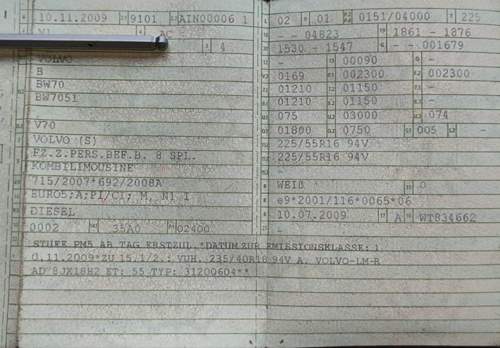 10.11.2009 9101 AIN00006 1
M1 AC
4
VOLVO
B
BW70
BW7051
V70
VOLVO (S)
FZ.Z.PERS.BEF.B. 8 SPL.
KOMBILIMOUSINE
715/2007*692/2008A
EURO5;A;PI/CI; M, N1 I
DIESEL
0002 35A0 02400
02 01 0151/04000 225
- - 04823 1861 - 1876
1530 - 1547 - - 001679
- 00090 -
0169 002300 002300
01210 01150 -
01210 01150 -
075 03000 074
01800 0750 005 -
225/55R16 94V
225/55R16 94V
-
WEIß 0
e9*2001/116*0065*06
10.07.2009 A WT834662
STUFE PM5 AB TAG ERSTZUL.*DATUM ZUR EMISSIONSKLASSE: 1
0.11.2009*ZU 15.1/2.: VUH. 235/40R18 94V A. VOLVO-LM-R
AD 8JX18H2 ET: 55 TYP: 31200604**